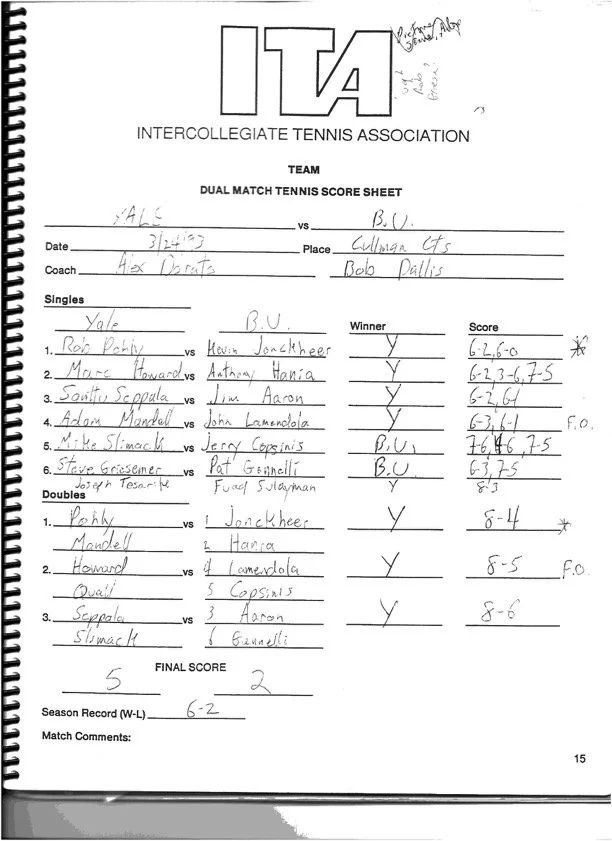 ITA
INTERCOLLEGIATE TENNIS ASSOCIATION
TEAM
DUAL MATCH TENNIS SCORE SHEET
YALE vs B.U.
Date 3/24/93 Place Cullman Cts
Coach Alex Dorato Bob Pallis
Singles
Yale B.U. Winner Score
1. Rob Pohly vs Kevin Jonckheer Y 6-2, 6-0 *
2. Marc Howard vs Anthony Hania Y 6-2, 3-6, 7-5
3. Seppala vs Jim Aaron Y 6-2, 6-1
4. Adam Mandell vs John Lamendola Y 6-3, 6-1 F.O.
5. Mike Slimack vs Jerry Copsinis B.U. 7-6, 4-6, 7-5
6. Steve Griesemer vs Pat Gennelli B.U. 6-3, 7-5
Joseph Fuad Sulayman Y 8-3
Doubles
1. Pohly vs 1 Jonckheer Y 8-4 *
Mandell 2 Hania
2. Howard vs 4 Lamendola Y 8-5 F.O.
5 Copsinis
3. Seppala vs 3 Aaron Y 8-6
Slimack 6 Gennelli
FINAL SCORE
5 2
Season Record (W-L) 6-2
Match Comments:
15